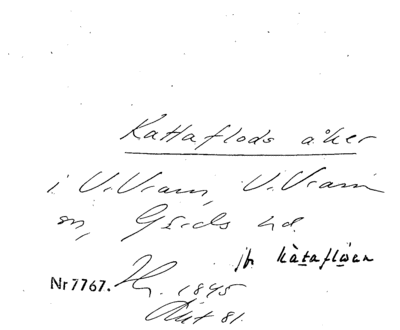 Kattaflods åker
i V. Vram, V. Vram
sn, Gärds hd.
jfr kàtaflóen
Nr 7767.
1845
Akt 81.